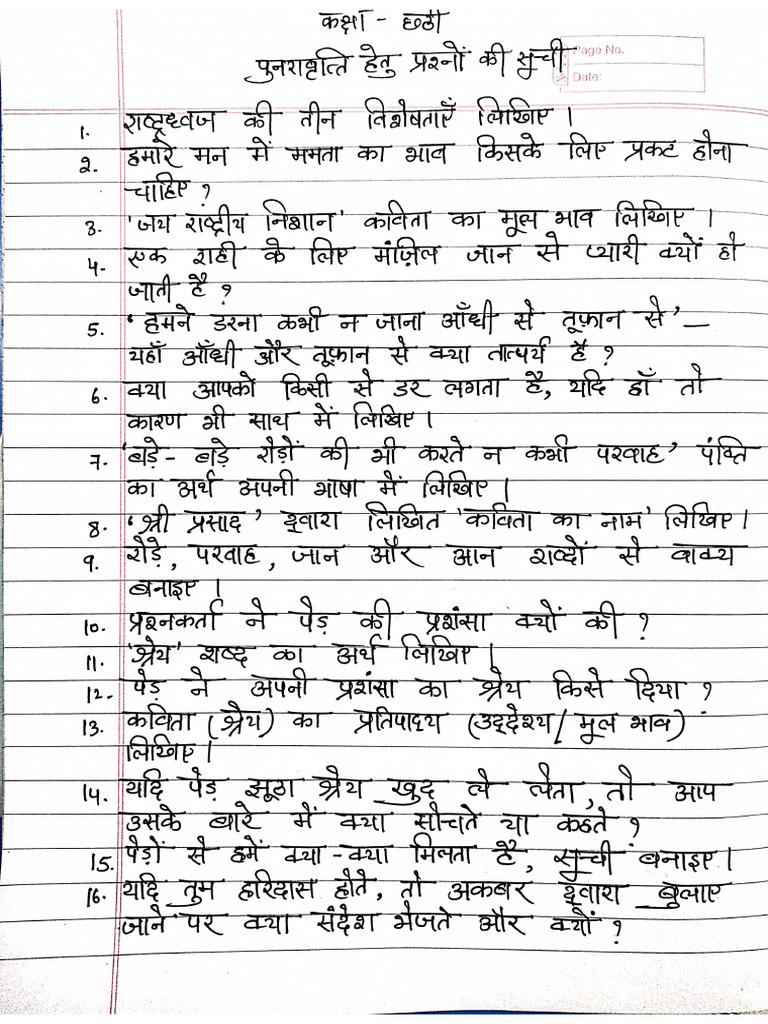 कक्षा - छठी
पुनरावृत्ति हेतु प्रश्नों की सूची
Page No.
Date:
1. राष्ट्रध्वज की तीन विशेषताएँ लिखिए।
2. हमारे मन में ममता का भाव किसके लिए प्रकट होना
चाहिए ?
3. 'जय राष्ट्रीय निशान' कविता का मूल भाव लिखिए।
4. एक राही के लिए मंज़िल जान से प्यारी क्यों हो
जाती है ?
5. 'हमने डरना कभी न जाना आँधी से तूफ़ान से' –
यहाँ आँधी और तूफ़ान से क्या तात्पर्य है ?
6. क्या आपको किसी से डर लगता है, यदि हाँ तो
कारण भी साथ में लिखिए।
7. 'बड़े - बड़े रोड़ों की भी करते न कभी परवाह' पंक्ति
का अर्थ अपनी भाषा में लिखिए।
8. 'श्री प्रसाद' द्वारा लिखित 'कविता का नाम' लिखिए।
9. रोड़े, परवाह, जान और आन शब्दों से वाक्य
बनाइए।
10. प्रश्नकर्ता ने पेड़ की प्रशंसा क्यों की ?
11. 'श्रेय' शब्द का अर्थ लिखिए।
12. पेड़ ने अपनी प्रशंसा का श्रेय किसे दिया ?
13. कविता (श्रेय) का प्रतिपाद्य (उद्देश्य/मूल भाव)
लिखिए।
14. यदि पेड़ झूठा श्रेय खुद ले लेता, तो आप
उसके बारे में क्या सोचते या कहते ?
15. पेड़ों से हमें क्या-क्या मिलता है, सूची बनाइए।
16. यदि तुम हरिदास होते, तो अकबर द्वारा बुलाए
जाने पर क्या संदेश भेजते और क्यों ?